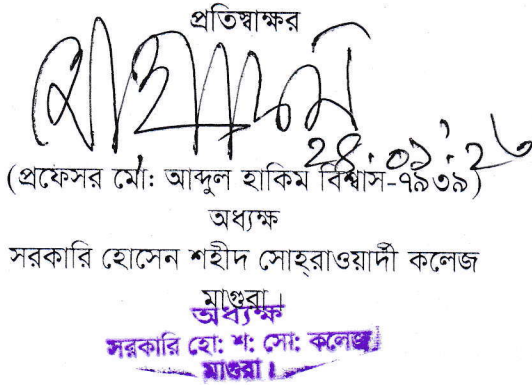 প্রতিস্বাক্ষর
২৪.০১.২৬
(প্রফেসর মো: আব্দুল হাকিম বিশ্বাস-৭৯৩৯)
অধ্যক্ষ
সরকারি হোসেন শহীদ সোহ্‌রাওয়ার্দী কলেজ
মাগুরা।
অধ্যক্ষ
সরকারি হো: শ: সো: কলেজ
মাগুরা।